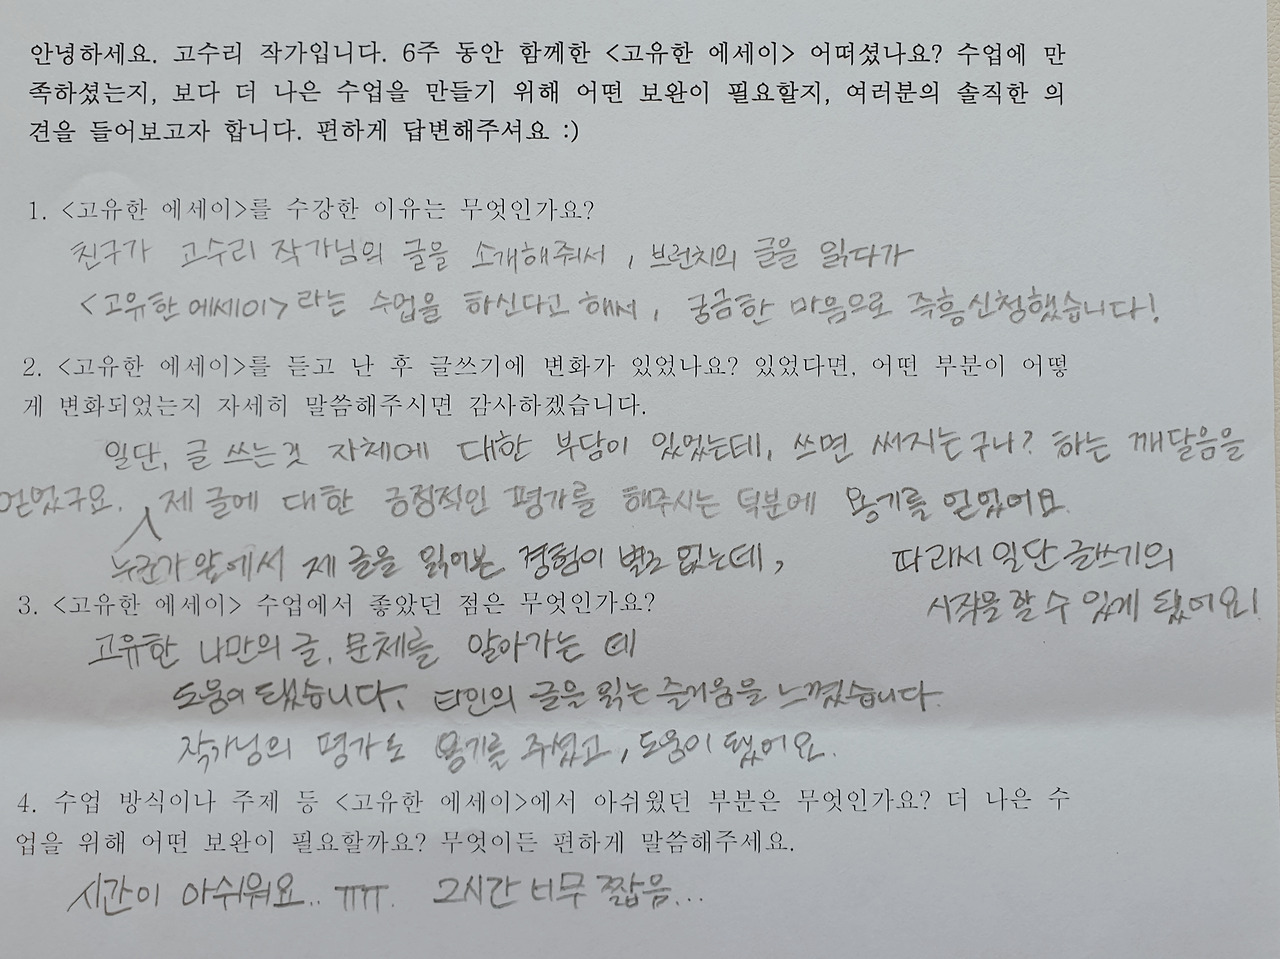 안녕하세요. 고수리 작가입니다. 6주 동안 함께한 <고유한 에세이> 어떠셨나요? 수업에 만
족하셨는지, 보다 더 나은 수업을 만들기 위해 어떤 보완이 필요할지, 여러분의 솔직한 의
견을 들어보고자 합니다. 편하게 답변해주셔요 :)
1. <고유한 에세이>를 수강한 이유는 무엇인가요?
친구가 고수리 작가님의 글을 소개해줘서, 브런치의 글을 읽다가
<고유한 에세이>라는 수업을 하신다고 해서, 궁금한 마음으로 즉흥신청했습니다!
2. <고유한 에세이>를 듣고 난 후 글쓰기에 변화가 있었나요? 있었다면, 어떤 부분이 어떻
게 변화되었는지 자세히 말씀해주시면 감사하겠습니다.
일단, 글 쓰는것 자체에 대한 부담이 있었는데, 쓰면 써지는구나? 하는 깨달음을
얻었구요. 제 글에 대한 긍정적인 평가를 해주시는 덕분에 용기를 얻었어요.
누군가 앞에서 제 글을 읽어본 경험이 별로 없는데, 따라서 일단 글쓰기의
시작을 할 수 있게 됐어요!
3. <고유한 에세이> 수업에서 좋았던 점은 무엇인가요?
고유한 나만의 글, 문체를 알아가는 데
도움이 됐습니다. 타인의 글을 읽는 즐거움을 느꼈습니다.
작가님의 평가도 용기를 주셨고, 도움이 됐어요.
4. 수업 방식이나 주제 등 <고유한 에세이>에서 아쉬웠던 부분은 무엇인가요? 더 나은 수
업을 위해 어떤 보완이 필요할까요? 무엇이든 편하게 말씀해주세요.
시간이 아쉬워요.. ㅠㅠ. 2시간 너무 짧음...